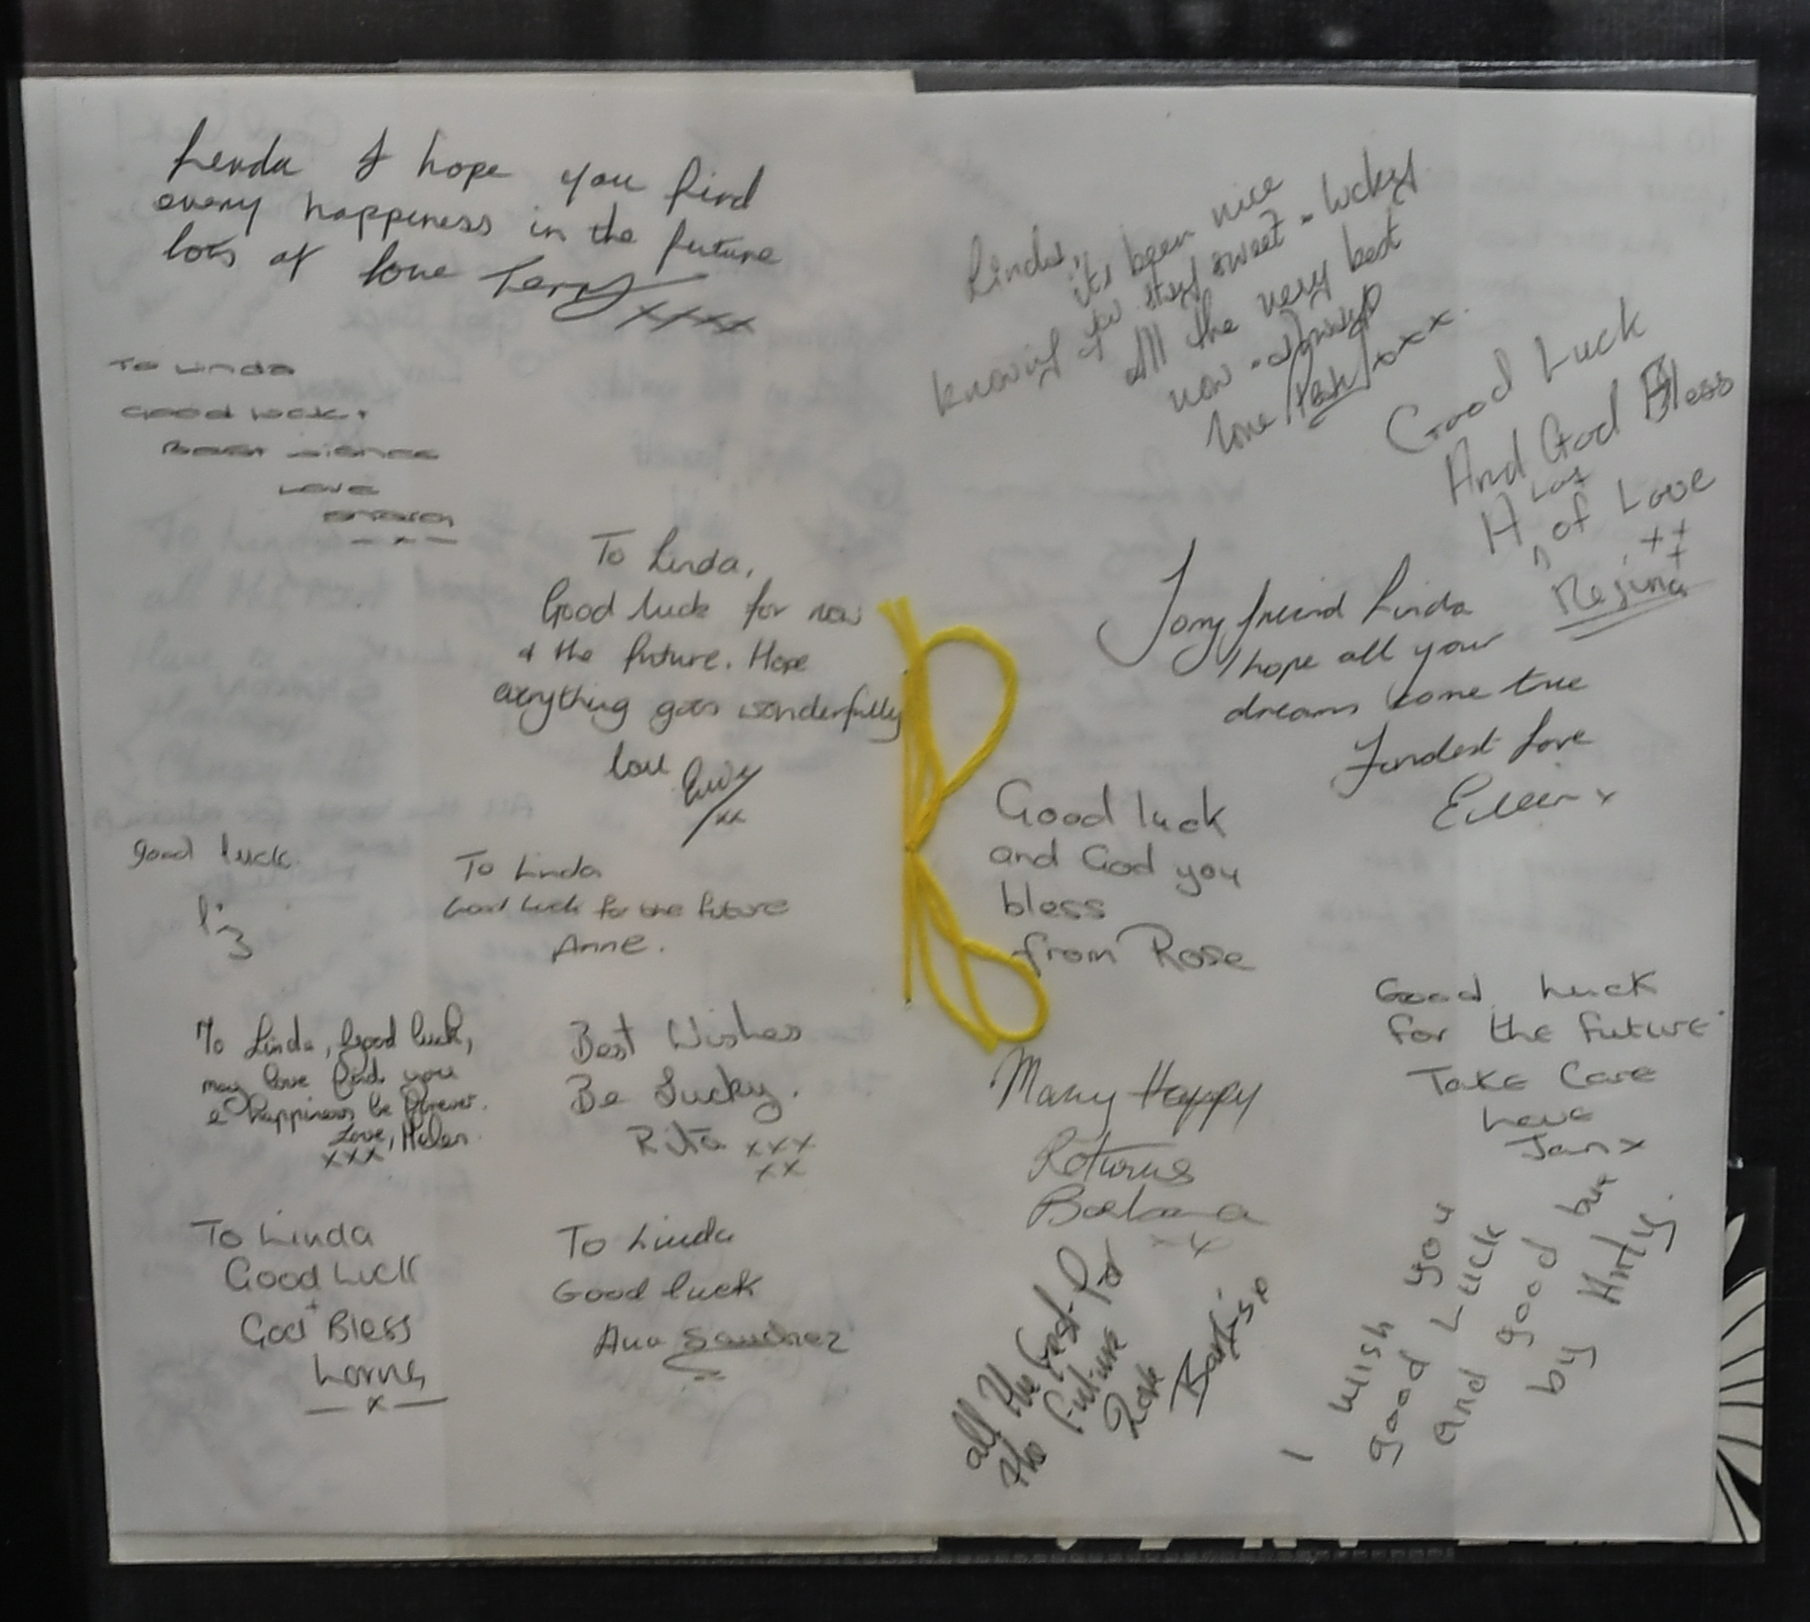 Linda I hope you find
every happiness in the future
lots of love Terry xxxx
To Linda
Good luck,
Best wishes
Love
x
To Linda,
Good luck for now
& the future. Hope
everything goes wonderfully
love
xx
good luck
Liz
To Linda
Good luck for the future
Anne.
To Linda, Good luck,
may love find you
& happiness be forever.
Love, Helen
xxx
Best Wishes
Be Lucky.
Rita xxx
xx
To Linda
Good Luck
+
God Bless
Lorna
x
To Linda
Good luck
Ana Sanchez
Linda,
its been nice
knowing you stay sweet - lucky
All the very best
now - always
love Pat xxx
Good Luck
And God Bless
A Lot of Love
Regina
xxx
To my friend Linda
I hope all your
dreams come true
Fondest Love
Eileen x
Good luck
and God you
bless
from Rose
Good Luck
for the future
Take Care
Love
Jan x
Many Happy
Returns
Barbara
x
all the best for
the future
I wish you
good Luck
and good bye
by Andy.